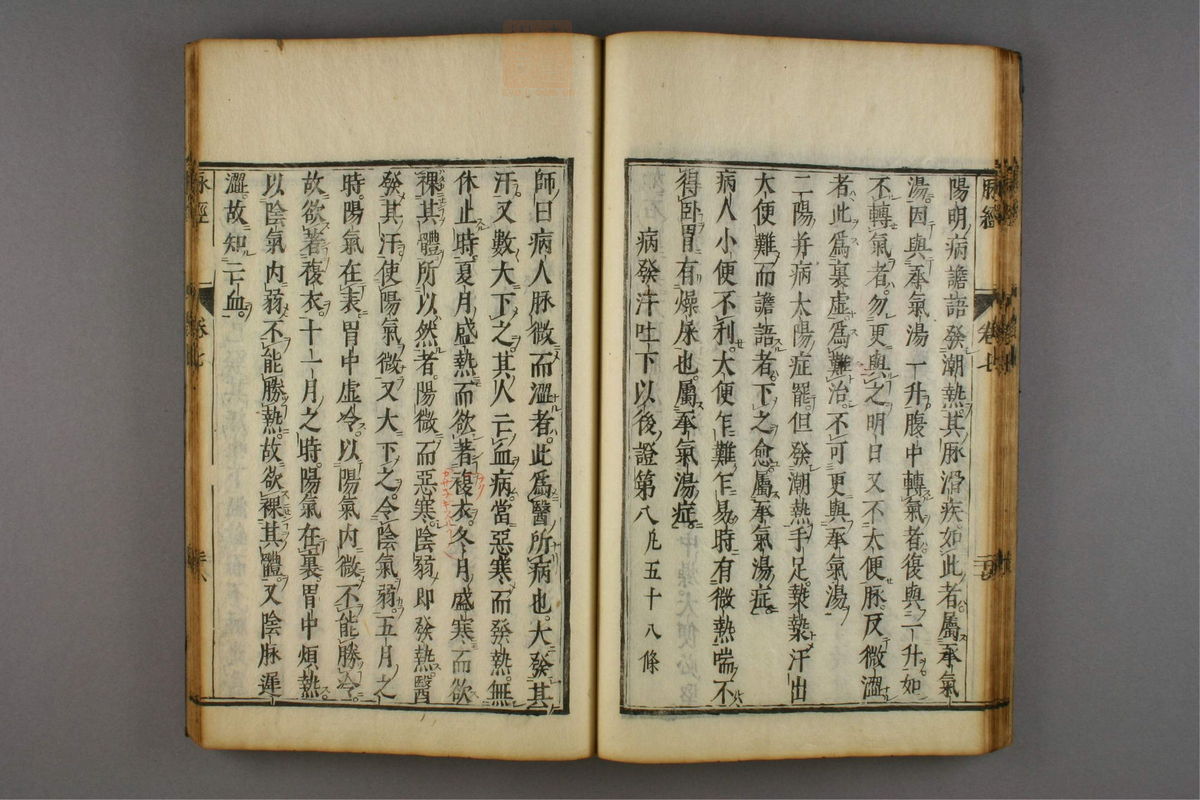 陽明病譫語發潮熱其脉滑疾如此者屬承氣
湯因與承氣湯一升腹中轉氣者復與一升如
不轉氣者勿更與之明日又不大便脉反微澀
者此爲裏虛爲難治不可更與承氣湯
二陽并病太陽症罷但發潮熱手足漐漐汗出
大便難而譫語者下之愈屬承氣湯症
病人小便不利大便乍難乍易時有微熱喘不
得卧胃有燥屎也屬承氣湯症
病發汗吐下以後證第八凡五十八條
師曰病人脉微而澀者此爲醫所病也大發其
汗又數大下之其人亡血病當惡寒而發熱無
休止時夏月盛熱而欲著複衣冬月盛寒而欲
裸其體所以然者陽微而惡寒陰弱即發熱醫
發其汗使陽氣微又大下之令陰氣弱五月之
時陽氣在表胃中虛冷以陽氣內微不能勝冷
故欲著複衣十一月之時陽氣在裏胃中煩熱
以陰氣內弱不能勝熱故欲裸其體又陰脉遲
澀故知亡血
脉經
卷七